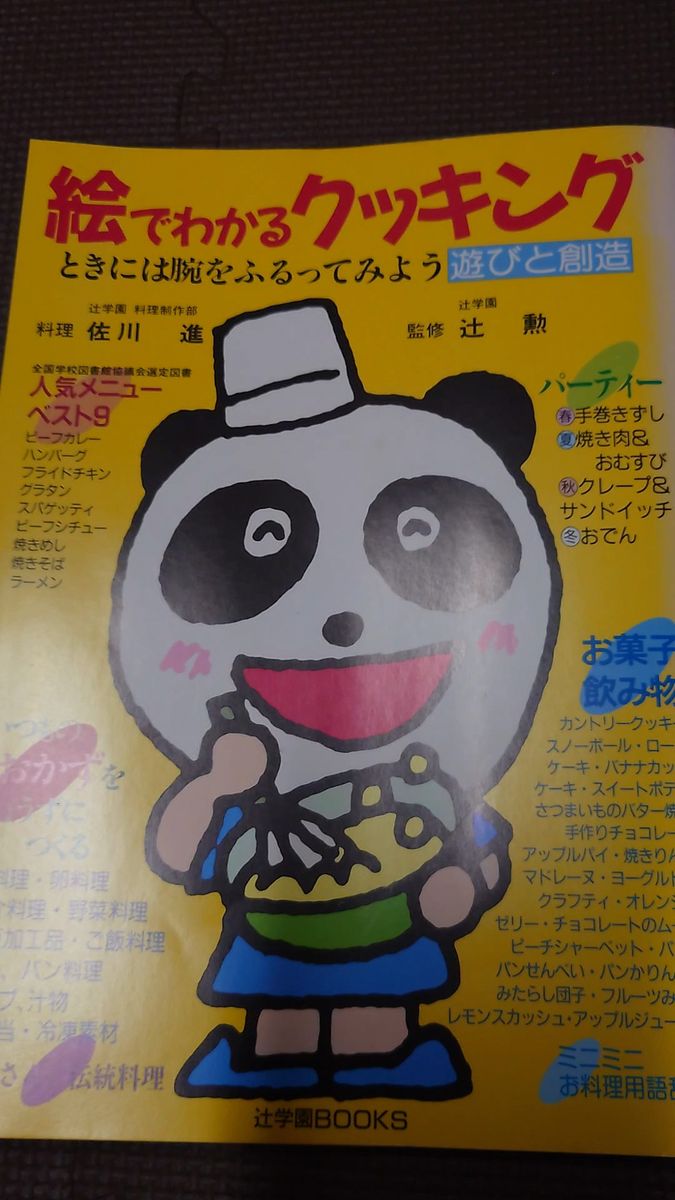 絵でわかるクッキング
ときには腕をふるってみよう 遊びと創造
辻学園 料理制作部
料理 佐川 進
辻学園
監修 辻 勲
全国学校図書館協議会選定図書
人気メニュー
ベスト9
ビーフカレー
ハンバーグ
フライドチキン
グラタン
スパゲッティ
ビーフシチュー
焼きめし
焼きそば
ラーメン
パーティー
春手巻きずし
夏焼き肉&
おむすび
秋クレープ&
サンドイッチ
冬おでん
お菓子
飲み物
カントリークッキー
スノーボール・ロー
ケーキ・バナナカッ
ケーキ・スイートポテ
さつまいものバター焼
手作りチョコレー
アップルパイ・焼きりん
マドレーヌ・ヨーグルト
クラフティ・オレン
ゼリー・チョコレートのムー
ピーチシャーベット・バ
パンせんべい・パンかりん
みたらし団子・フルーツみ
レモンスカッシュ・アップルジュー
ミニミニ
お料理用語
いつもの
おかずを
つくる
料理・卵料理
料理・野菜料理
加工品・ご飯料理
、パン料理
プ、汁物
当・冷凍素材
伝統料理
辻学園BOOKS